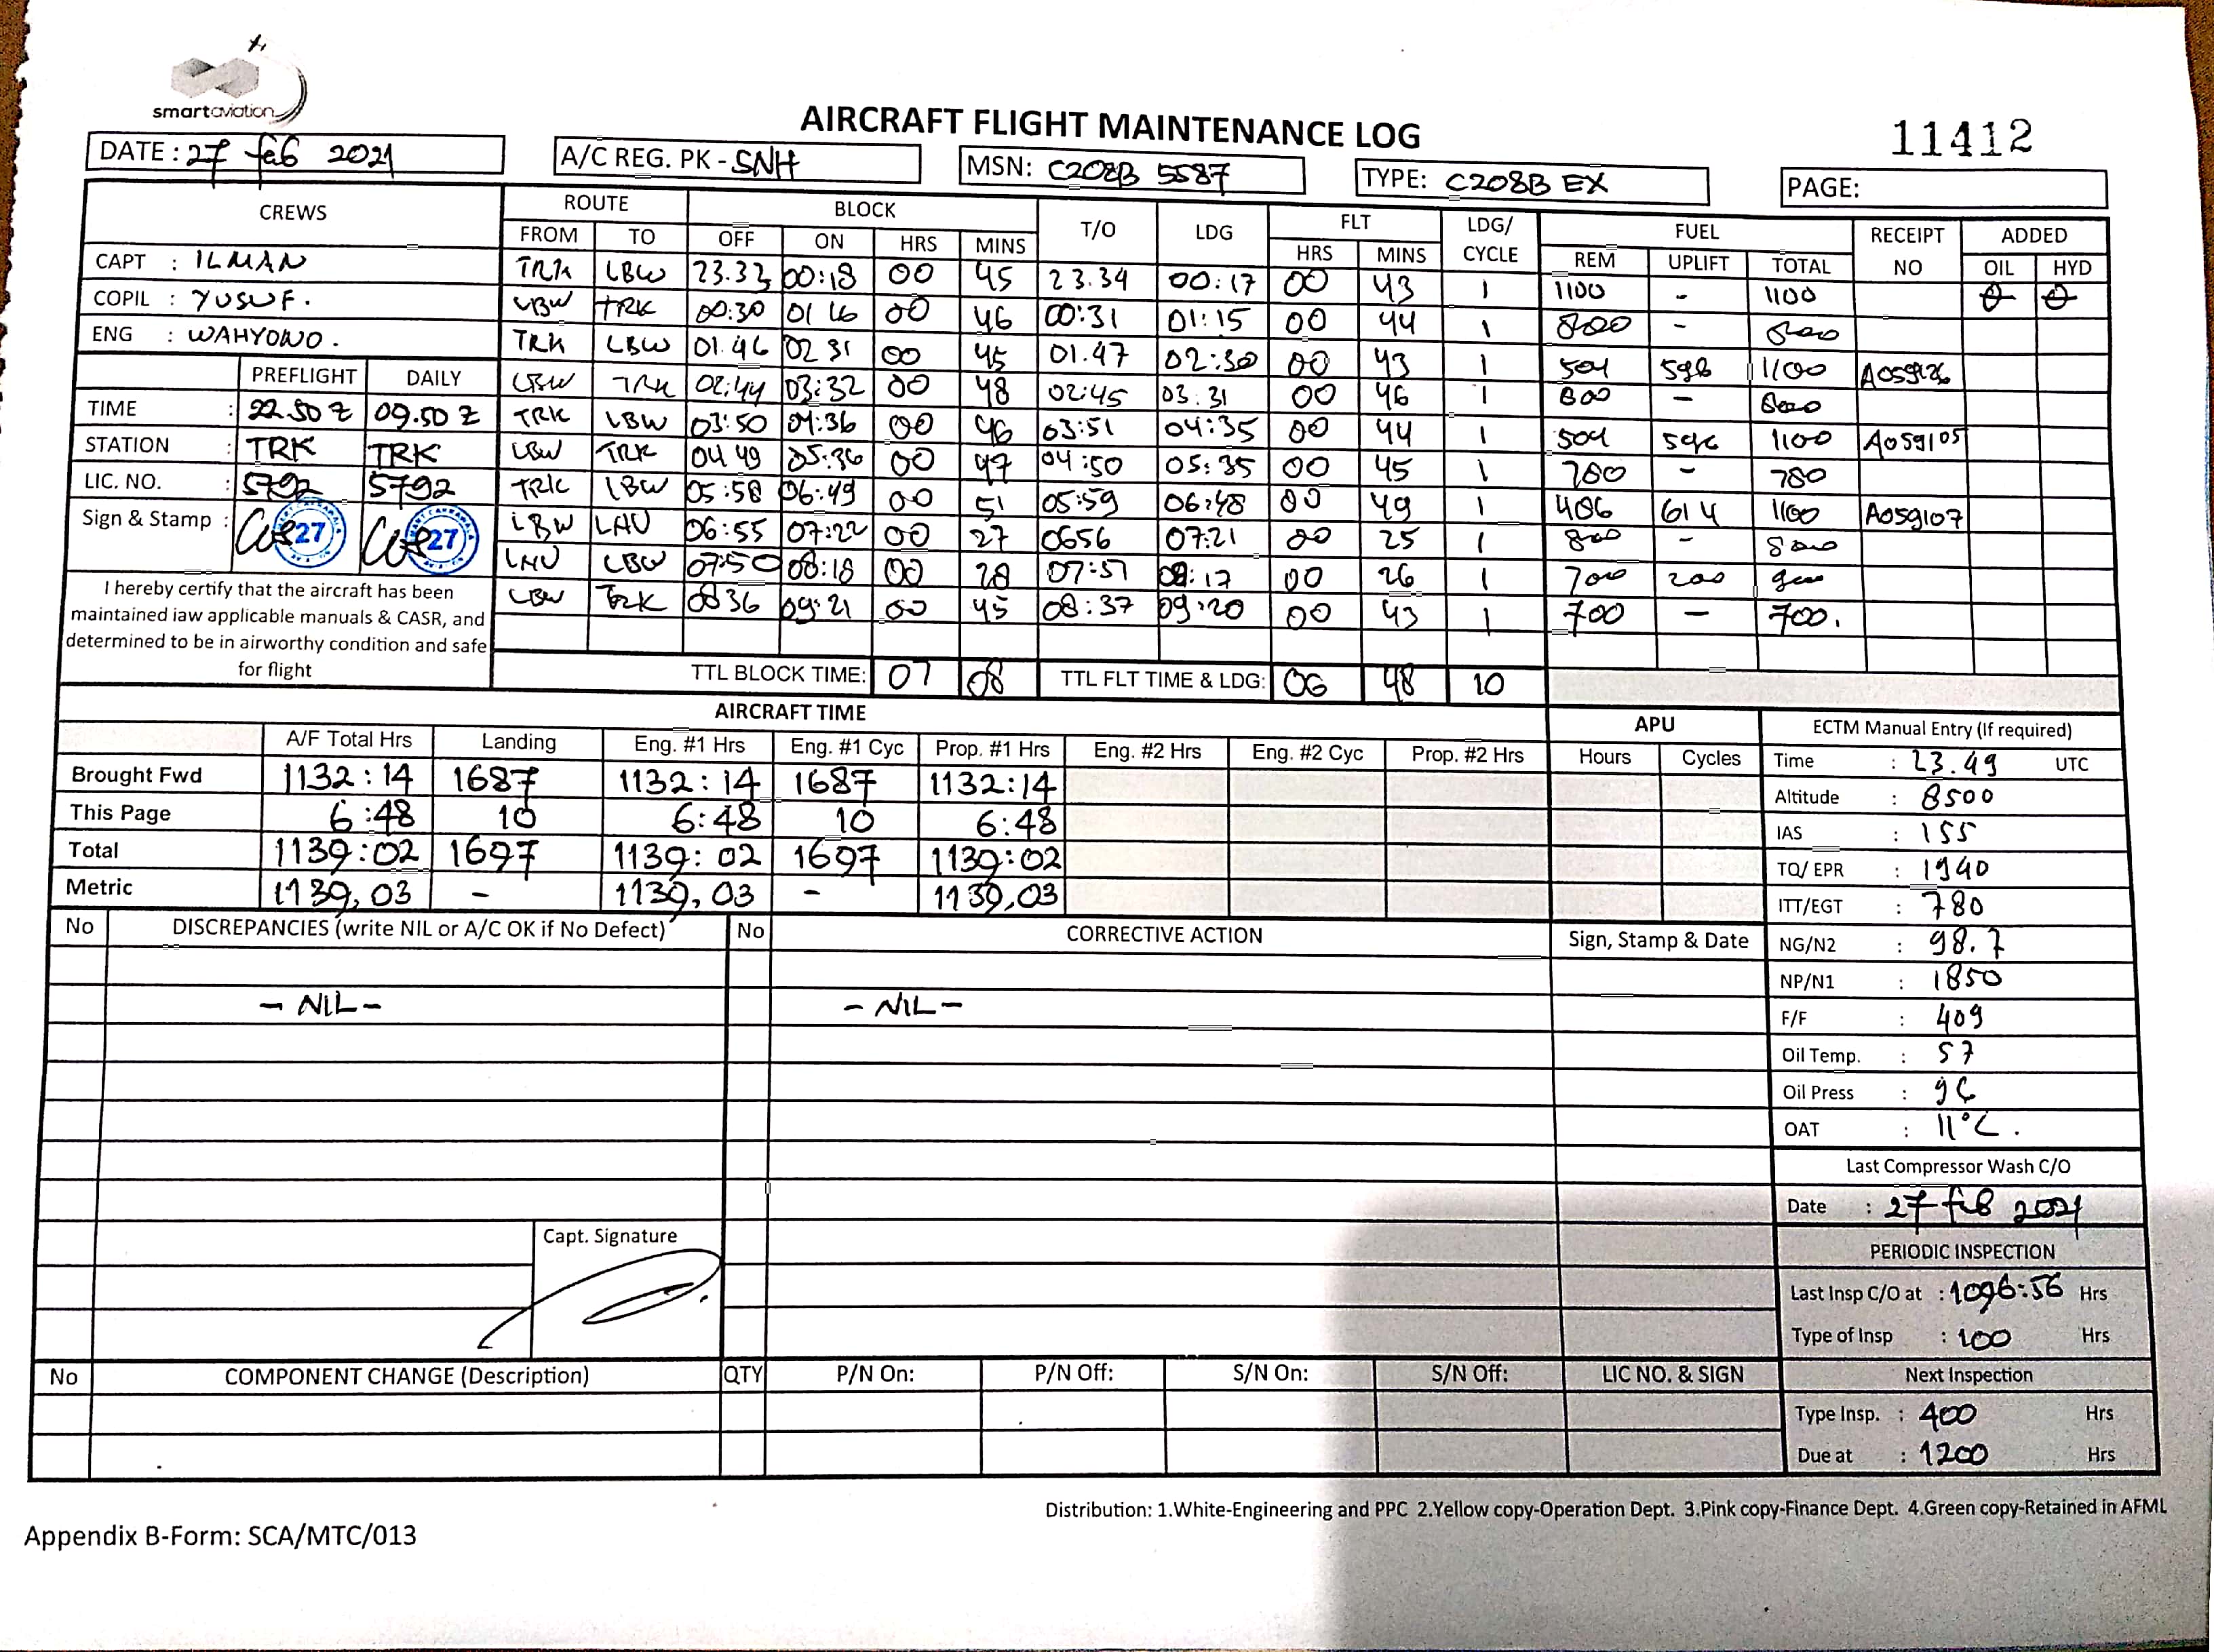 smartaviation
AIRCRAFT FLIGHT MAINTENANCE LOG
11412
DATE : 27 feb 2021 A/C REG. PK - SNH MSN: C208B 5587 TYPE: C208B EX PAGE:
CREWS ROUTE BLOCK T/O LDG FLT LDG/ CYCLE FUEL RECEIPT NO ADDED
FROM TO OFF ON HRS MINS HRS MINS REM UPLIFT TOTAL OIL HYD
CAPT : ILMAN
COPIL : YUSUF.
ENG : WAHYONO.
PREFLIGHT DAILY
TIME : 22.50 Z 09.50 Z
STATION : TRK TRK
LIC. NO. : 5792 5792
Sign & Stamp : 27 27
I hereby certify that the aircraft has been
maintained iaw applicable manuals & CASR, and
determined to be in airworthy condition and safe
for flight
TRK LBW 23.33 00:18 00 45 23.34 00:17 00 43 1 1100 - 1100
LBW TRK 00:30 01 16 00 46 00:31 01:15 00 44 1 800 - 800
TRK LBW 01.46 02 31 00 45 01.47 02:30 00 43 1 504 596 1100
LBW TRK 02:44 03:32 00 48 02:45 03.31 00 46 1 800 - 800
TRK LBW 03:50 04:36 00 46 03:51 04:35 00 44 1 504 596 1100 A059105
LBW TRK 04 49 05:36 00 47 04:50 05:35 00 45 1 780 - 780
TRK LBW 05:58 06:49 00 51 05:59 06:48 00 49 1 486 614 1100 A059107
LBW LNU 06:55 07:22 00 27 0656 07:21 00 25 1 800 - 800
LNU LBW 07:50 08:18 00 28 07:51 08:17 00 26 1 700 200 900
LBW TRK 08 36 09:21 00 45 08:37 09:20 00 43 1 700 - 700.
TTL BLOCK TIME: 07 08 TTL FLT TIME & LDG: 06 48 10
AIRCRAFT TIME APU
A/F Total Hrs Landing Eng. #1 Hrs Eng. #1 Cyc Prop. #1 Hrs Eng. #2 Hrs Eng. #2 Cyc Prop. #2 Hrs Hours Cycles
Brought Fwd 1132:14 1687 1132:14 1687 1132:14
This Page 6:48 10 6:48 10 6:48
Total 1139:02 1697 1139:02 1697 1139:02
Metric 1139,03 - 1139,03 - 1139,03
ECTM Manual Entry (If required)
Time : 23.49 UTC
Altitude : 8500
IAS : 155
TQ/ EPR : 1940
ITT/EGT : 780
NG/N2 : 98.7
NP/N1 : 1850
F/F : 409
Oil Temp. : 57
Oil Press : 96
OAT : 11°C.
Last Compressor Wash C/O
Date : 27 feb 2021
PERIODIC INSPECTION
Last Insp C/O at : 1096:56 Hrs
Type of Insp : 100 Hrs
Next Inspection
Type Insp. : 400 Hrs
Due at : 1200 Hrs
No DISCREPANCIES (write NIL or A/C OK if No Defect) No CORRECTIVE ACTION Sign, Stamp & Date
- NIL - - NIL -
Capt. Signature
No COMPONENT CHANGE (Description) QTY P/N On: P/N Off: S/N On: S/N Off: LIC NO. & SIGN
Distribution: 1.White-Engineering and PPC 2.Yellow copy-Operation Dept. 3.Pink copy-Finance Dept. 4.Green copy-Retained in AFML
Appendix B-Form: SCA/MTC/013